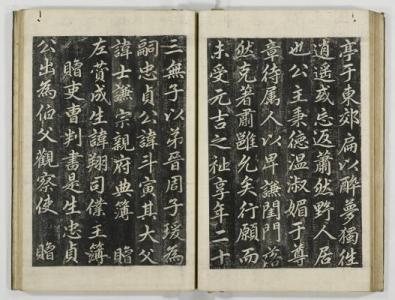 亭于東郊扁以醉夢獨徃
逍遥或忘返蕭然野人居
也公主秉德温淑媚于尊
章待属人以畀謙閨門
然克著肅雝允矣行願而
未受元吉之祉享年二十
三無子以弟晉周子瑗為
嗣忠貞公諱斗寅其大父
諱士謙宗親府典簿 贈
左賛成生諱翔司僕主簿
贈吏曹判書是生忠貞
公出為伯父觀察使 贈